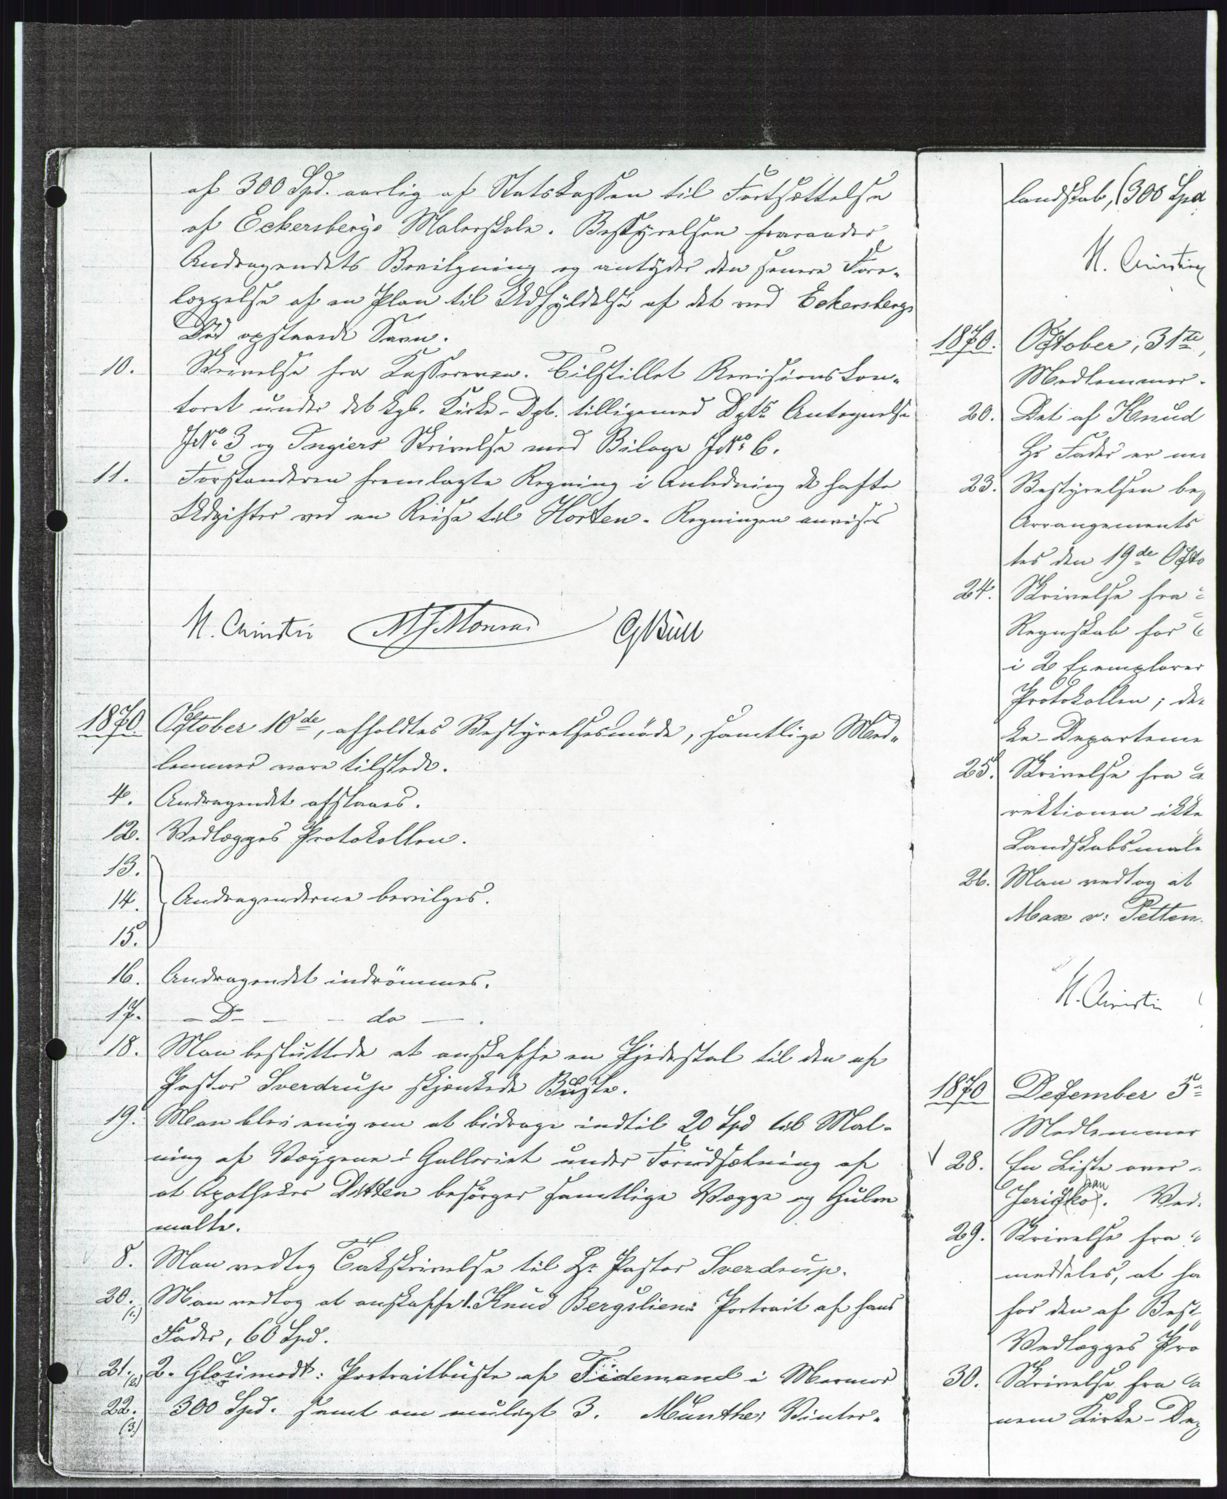 af 300 Spd. aarlig af Statskassen til Fortsættelse
af Eckersbergs Malerskole. Bestyrelsen fraraader
Andragendets Bevilgning og antyder den senere Fore-
læggelse af en Plan til Udfyldelse af det ved Eckersbergs
Død opstaaede Savn.
10. Skrivelse fra Kassereren. Tilstillet Revisionskon-
toret under det Kgl. Kirke-Dpt. tilligemed Dpts Antegnelse
JNo 3 og Ingiers Skrivelse med Bilage JNo 6.
11. Forstanderen fremlagte Regning i Anledning de hafte
Udgifter ved en Reise til Horten. Regningen anvises
H. Christie MJMonrad GBull
1870. October 10de, afholdtes Bestyrelsesmöde, samtlige Med-
lemmer vare tilstede.
4. Andragendet afslaaes.
12. Vedlægges Protokollen.
13.
14. Andragenderne bevilges.
15.
16. Andragendet indrömmes.
17. – Do – – do – .
18. Man besluttede at anskaffe en Pjedestal til den af
Pastor Sverdrup skjænkede Büste.
19. Man blev enig om at bidrage indtil 20 Spd til Mal-
ning af Væggene i Galleriet under Forudsætning af
at Apotheker Ditten besörger samtlige Vægge og Gulve
malte.
8. Man vedtog Takskrivelse til Hr. Pastor Sverdrup.
20. (1.) Man vedtog at anskaffe 1. Knud Bergsliens Portrait af hans
Fader, 60 Spd.
21. (2) 2. Glosimodt: Portraitbüste af Tidemand i Marmor
22. (3) 300 Spd. samt om muligt 3. Munthe: Vinter-
landskab, (300 Spd
H. Christie
1870. October, 31te,
Medlemmer
20. Det af Knud
Hs Fader er
23. Bestyrelsen be
Arrangements
tes den 19de Octo
24. Skrivelse fra
Regnskab for
i 2 Exemplarer
Protokollen; de
ke-Departeme
25. Skrivelse fra
rektionen ikke
Landskabsmale
26. Man vedtog at
Max v: Petten
H. Christie
1870 December 5
Medlemmer
28. En Liste over
Jerichau. Ved.
29. Skrivelse fra
meddeles, at ha
for den af Best
Vedlægges Pro
30. Skrivelse fra
nem Kirke-Dep